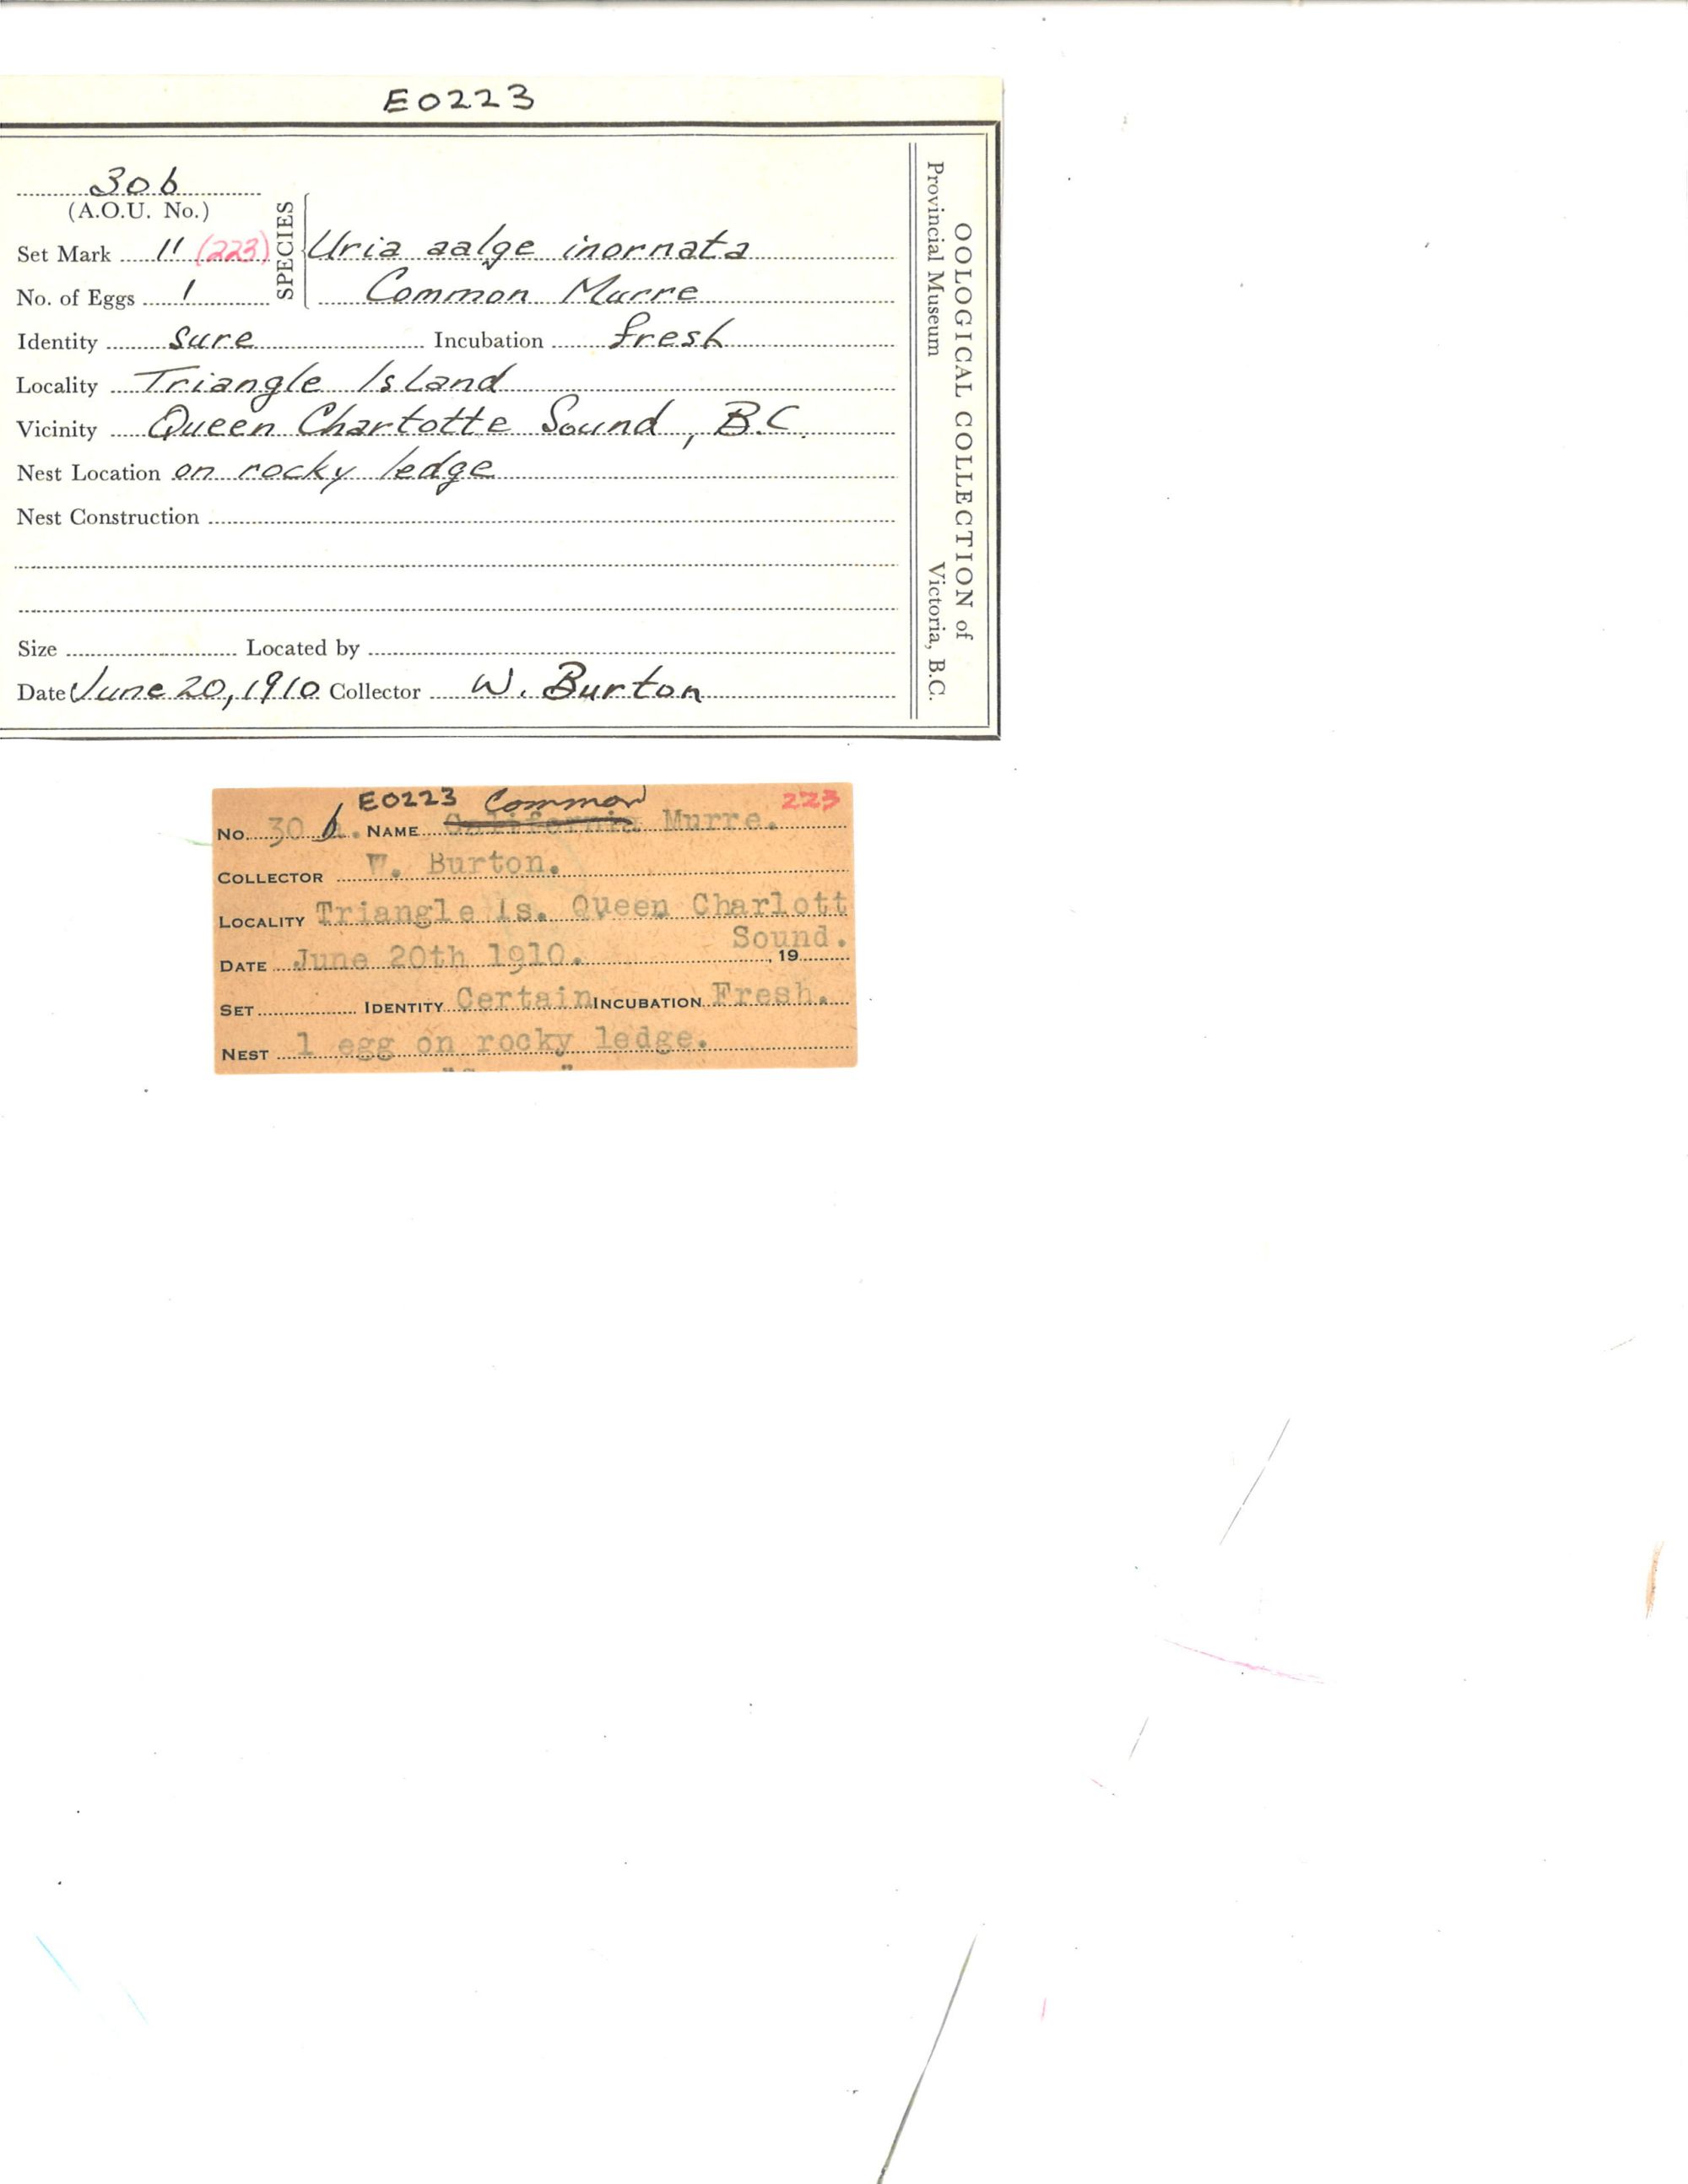 E0223
30b
(A.O.U. No.)
Set Mark 11 (223)
No. of Eggs 1
SPECIES
Uria aalge inornata
Common Murre
Identity sure Incubation fresh
Locality Triangle Island
Vicinity Queen Chartotte Sound, B.C.
Nest Location on rocky ledge
Nest Construction
Size Located by
Date June 20, 1910 Collector W. Burton
OOLOGICAL COLLECTION of
Provincial Museum Victoria, B.C.
E0223 Common 223
No. 30 b. NAME California Murre.
COLLECTOR W. Burton.
LOCALITY Triangle Is. Queen Charlott
Sound.
DATE June 20th 1910. , 19
SET IDENTITY Certain INCUBATION Fresh.
NEST 1 egg on rocky ledge.